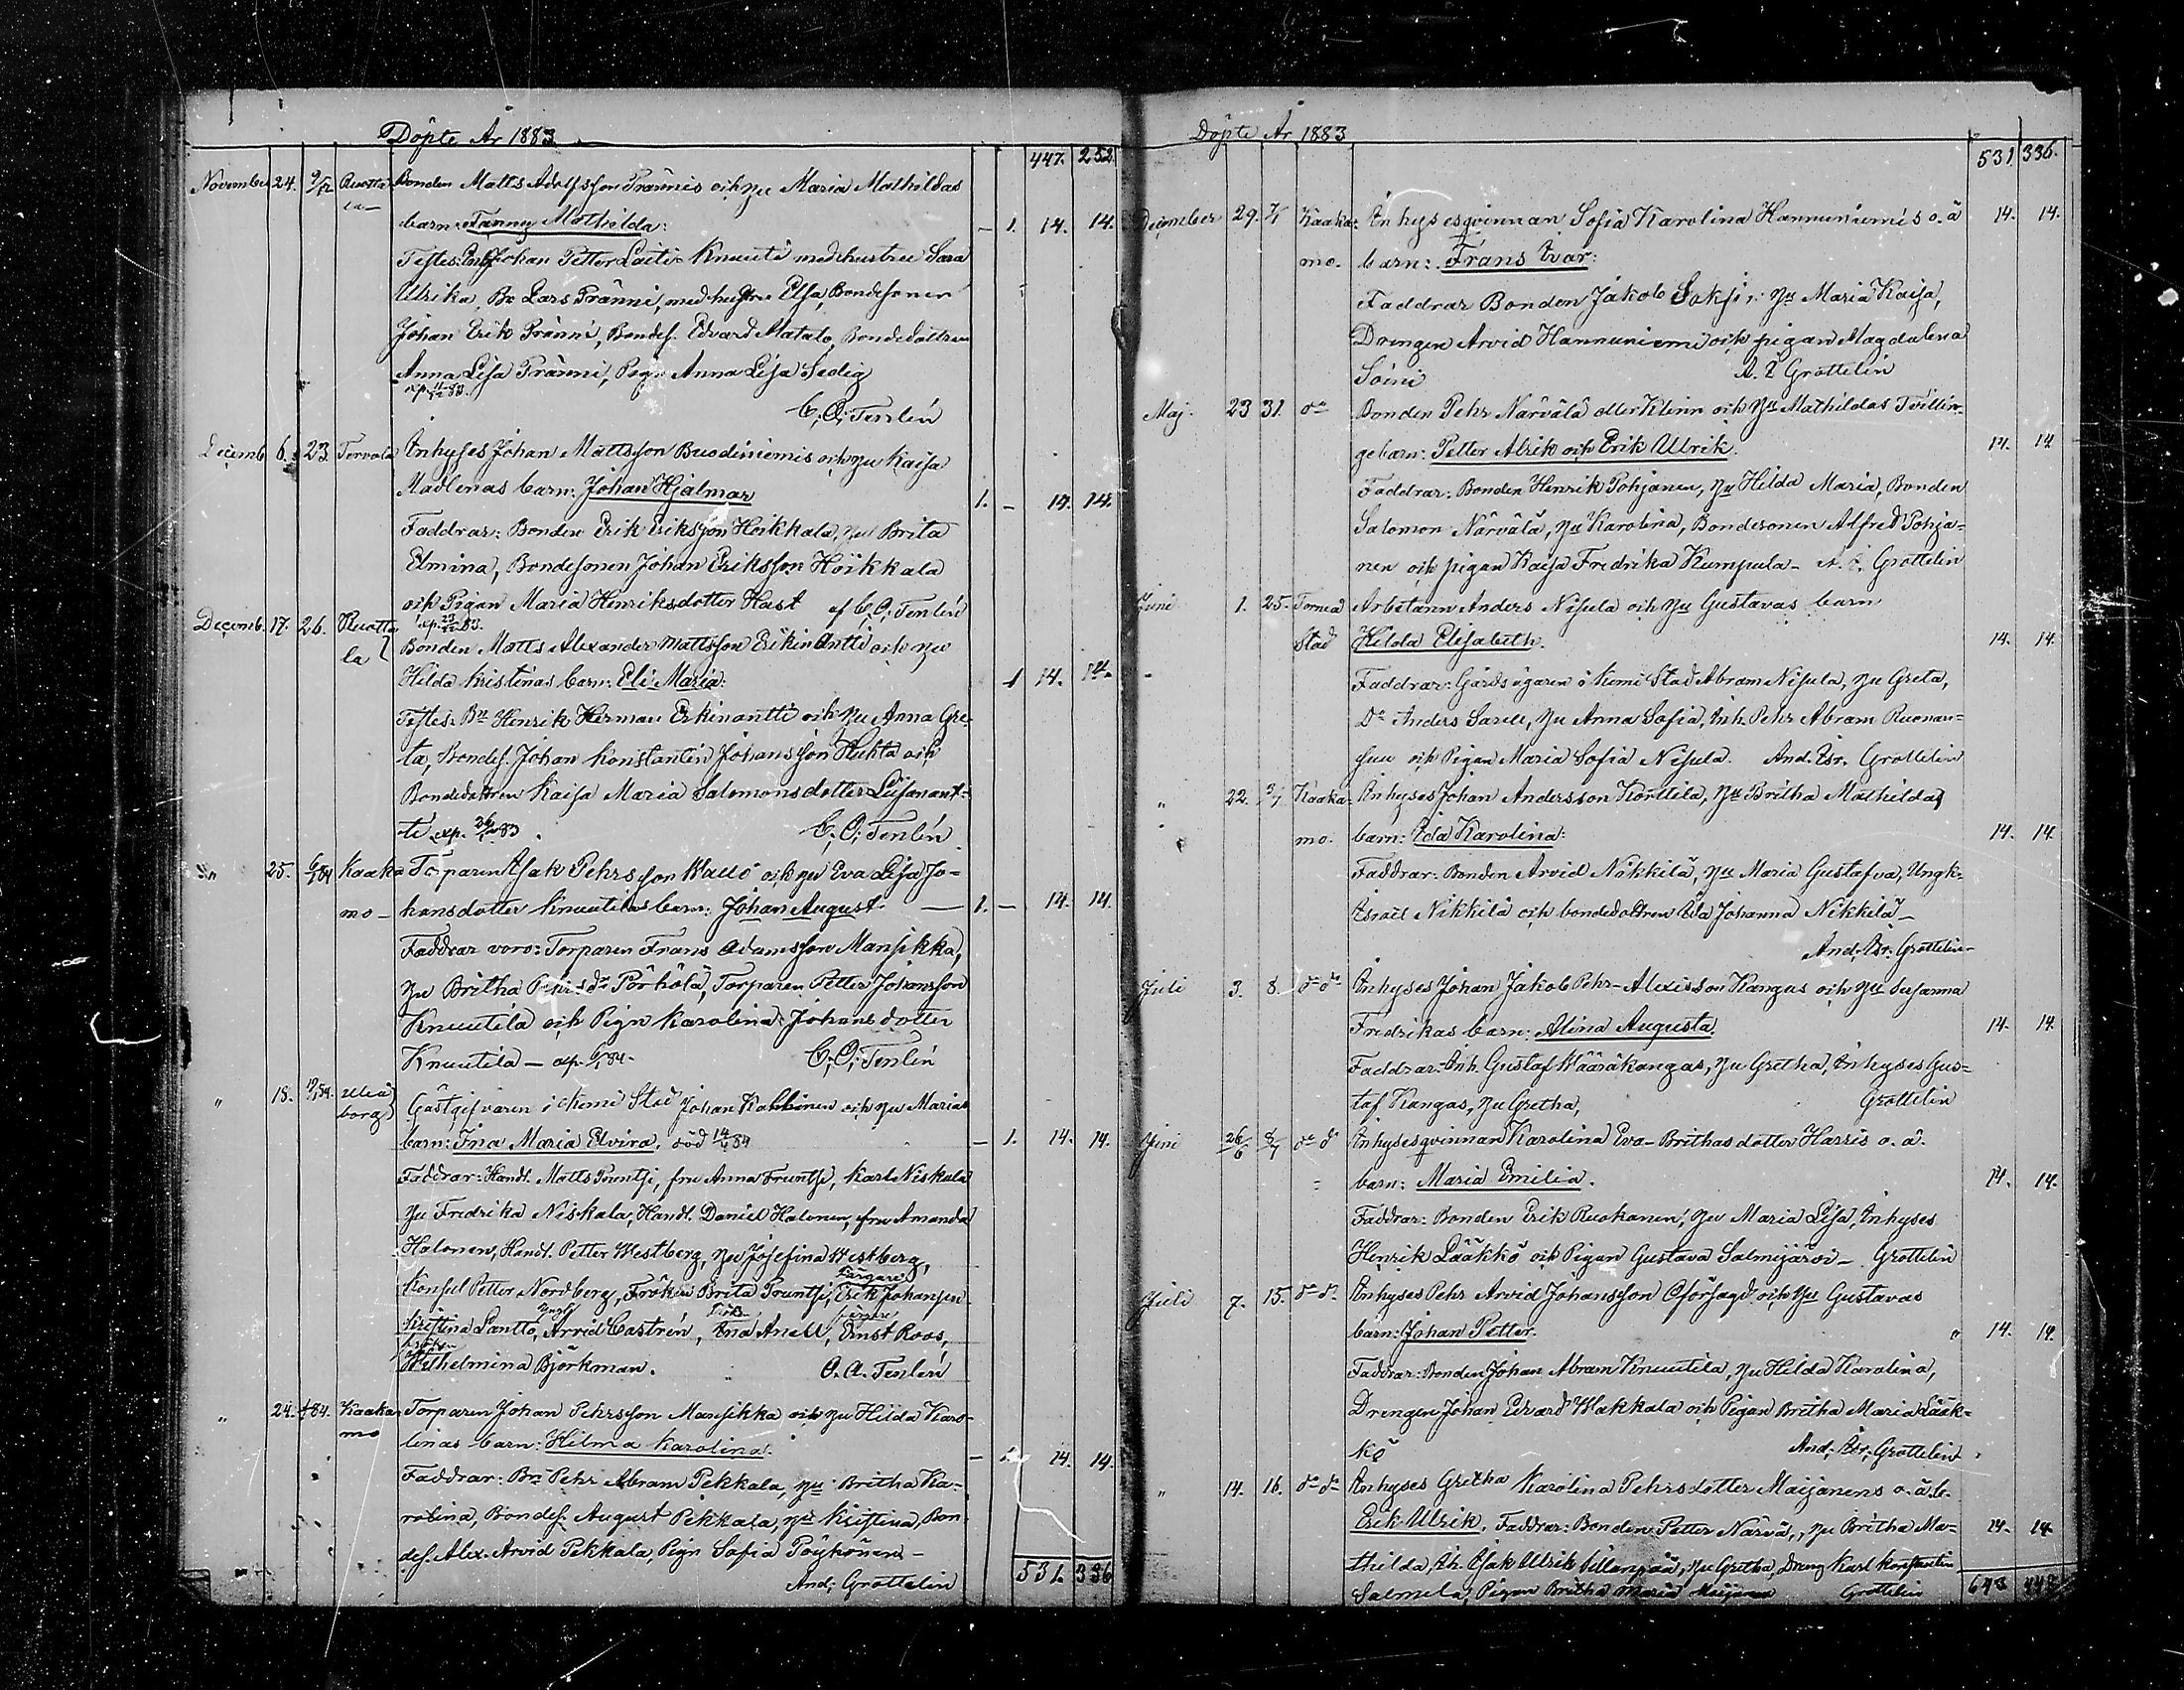 Döpte År 1883
447. 252
November 24. 9/12 Ruotta Bonden Matts Adolfsson Prännis och Hu Maria Mathildas
la barn: Fanny Mathilda: - 1. 14. 14.
Testes: Johan Petter Laiti Knuuti med hustru Sara
Ulrika, Bo Lars Pränni, med hustru Elsa, Bondesonen
Johan Erik Pränni, Bondes. Edvard Matalo, Bondedottren
Anna Lisa Pränni, Pign Anna Lisa Sedig
C. O. Tenlén
Decemb. 6. 23. Tervola Inhyses Johan Mattsson Ruodiniemis och Hu Kaisa
Madlenas barn: Johan Hjalmar 1. - 14. 14.
Faddrar: Bonden Erik Eriksson Hoikkala, Hu Brita
Elmina, Bondesonen Johan Eriksson Hoikkala
och Pigan Maria Henriksdotter Hast af C. O. Tenlén
Decemb. 17. 26. Ruotta
la Bonden Matts Alexander Mattsson Erkinantti och Hu
Hilda Kristinas barn: Eli Maria: 1 14. 14.
Testes: Bn Henrik Herman Erkinantti och Hu Anna Gre-
ta, Bondes. Johan Konstantin Johansson Huhta och
Bondedottren Kaisa Maria Salomonsdotter Liisanant-
ti exp. 26/12 83. C. O. Tenlén
" 25. 6/1 84 Kaaka Torparen Isak Pehrsson Wallo och Hu Eva Lisa Jo-
mo- hansdotter Knuutilas barn: Johan August. 1. - 14. 14.
Faddrar voro: Torparen Frans Adamsson Mansikka,
Hu Britha Pehrsdr Pörhölä, Torparen Petter Johansson
Knuutila och Pign Karolina Johansdotter
Knuutila - exp. 6/1 84. C. O. Tenlén
" 18. Uleå
borg Gästgifvaren i Kemi Stad Johan Kahlinen och Hu Marias
barn: Irna Maria Elvira. död 84 - 1. 14. 14.
Faddrar: Handl. Matts Pruntsi, fru Anna Pruntsi, Karl Niskala
Hu Fredrika Niskala, Handl. Daniel Halonen, fru Amanda
Halonen, Handl. Petter Westberg, Hu Josefina Westberg,
Konsul Petter Nordberg, Fröken Brita Pruntsi, Färgare Erik Johansen
Kristina Lantto, Arvid Castrén, Ina Anell, Ernst Roos,
Wilhelmina Björkman. O. A. Tenlén
" 24. 84. Kaaka Torparen Johan Pehrsson Mansikka och Hu Hilda Karo-
mo linas barn: Hilma Karolina. - 1. 14. 14.
Faddrar: Bn Pehr Abram Pekkala, Hu Britha Ka-
rolina, Bondes. August Pekkala, Hu Kristina, Bon-
des. Alex. Arvid Pekkala, Pign Sofia Pöykönen -
And. Grottelin
531. 336
Döpte År 1883
531. 336.
December 29. Kaaka- Inhysesqvinnan Sofia Karolina Hannuniemis o. ä 14. 14.
mo. barn: Frans Ivar:
Faddrar Bonden Jakob Soksi, Hu Maria Kaisa,
Drengen Arvid Hannuniemi och pigan Magdalena
Soini A. I Grottelin
Maj. 23 31. do Bonden Pehr Närvälä eller Klinn och Hu Mathildas Tvillin-
gebarn: Petter Alrik och Erik Ulrik. 14. 14
Faddrar: Bonden Henrik Pohjanen, Hu Hilda Maria, Bonden
Salomon Närvälä, Hu Karolina, Bondesonen Alfred Pohja-
nen och pigan Kaisa Fredrika Kumpula- A. I. Grottelin
Juni 1. 25. Torneå Arbetarn Anders Nisula och Hu Gustavas barn
Stad Hilda Elisabeth. 14. 14.
Faddrar: Gårdsägaren i Kemi Stad Abram Nisula, Hu Greta,
Do Anders Sarell, Hu Anna Sofia, Inh. Pehr Abram Ruonan-
suu och Pigan Maria Sofia Nisula. And. Isr. Grottelin
" 22. Kaaka- Inhyses Johan Andersson Korttila, Hu Britha Mathildas
mo. barn: Ida Karolina: 14. 14.
Faddrar: Bonden Arvid Nikkilä, Hu Maria Gustafva, Ungk.
Israel Nikkilä och bondedottren Ida Johanna Nikkilä-
And. Isr. Grottelin
Juli 3. 8. do do Inhyses Johan Jakob Pehr-Alexisson Kangas och Hu Susanna
Fredrikas barn: Alina Augusta. 14. 14.
Faddrar: Inh. Gustaf Wääräkangas, Hu Gretha, Inhyses Gus-
taf Kangas, Hu Gretha, Grottelin
Juni 26/6 8/7 do do Inhysesqvinnan Karolina Eva-Brithasdotter Harris o. ä.
barn: Maria Emilia. 14. 14.
Faddrar: Bonden Erik Ruokanen, Hu Maria Lisa, Inhyses
Henrik Lääkkö och Pigan Gustava Salmijärvi- Grottelin
Juli 7. 15. do do Inhyses Pehr Arvid Johansson Oförsagd och Hu Gustavas
barn: Johan Petter. 14. 14.
Faddrar: Bonden Johan Abram Knuutila, Hu Hilda Karolina,
Drengen Johan Edvard Wakkala och Pigan Britha Maria Lääk-
kö And. Isr. Grottelin
" 14. 16. do do Inhyses Gretha Karolina Pehrsdotter Maijanens o. ä. b.
Erik Ulrik. Faddrar: Bonden Petter Närvä, Hu Britha Ma- 14. 14
thilda, Ih. Isak Ulrik Pillanpää, Hu Gretha, Dreng Karl Konstantin
Salmela, Pigan Britha Maria Maijanen Grottelin
643 448